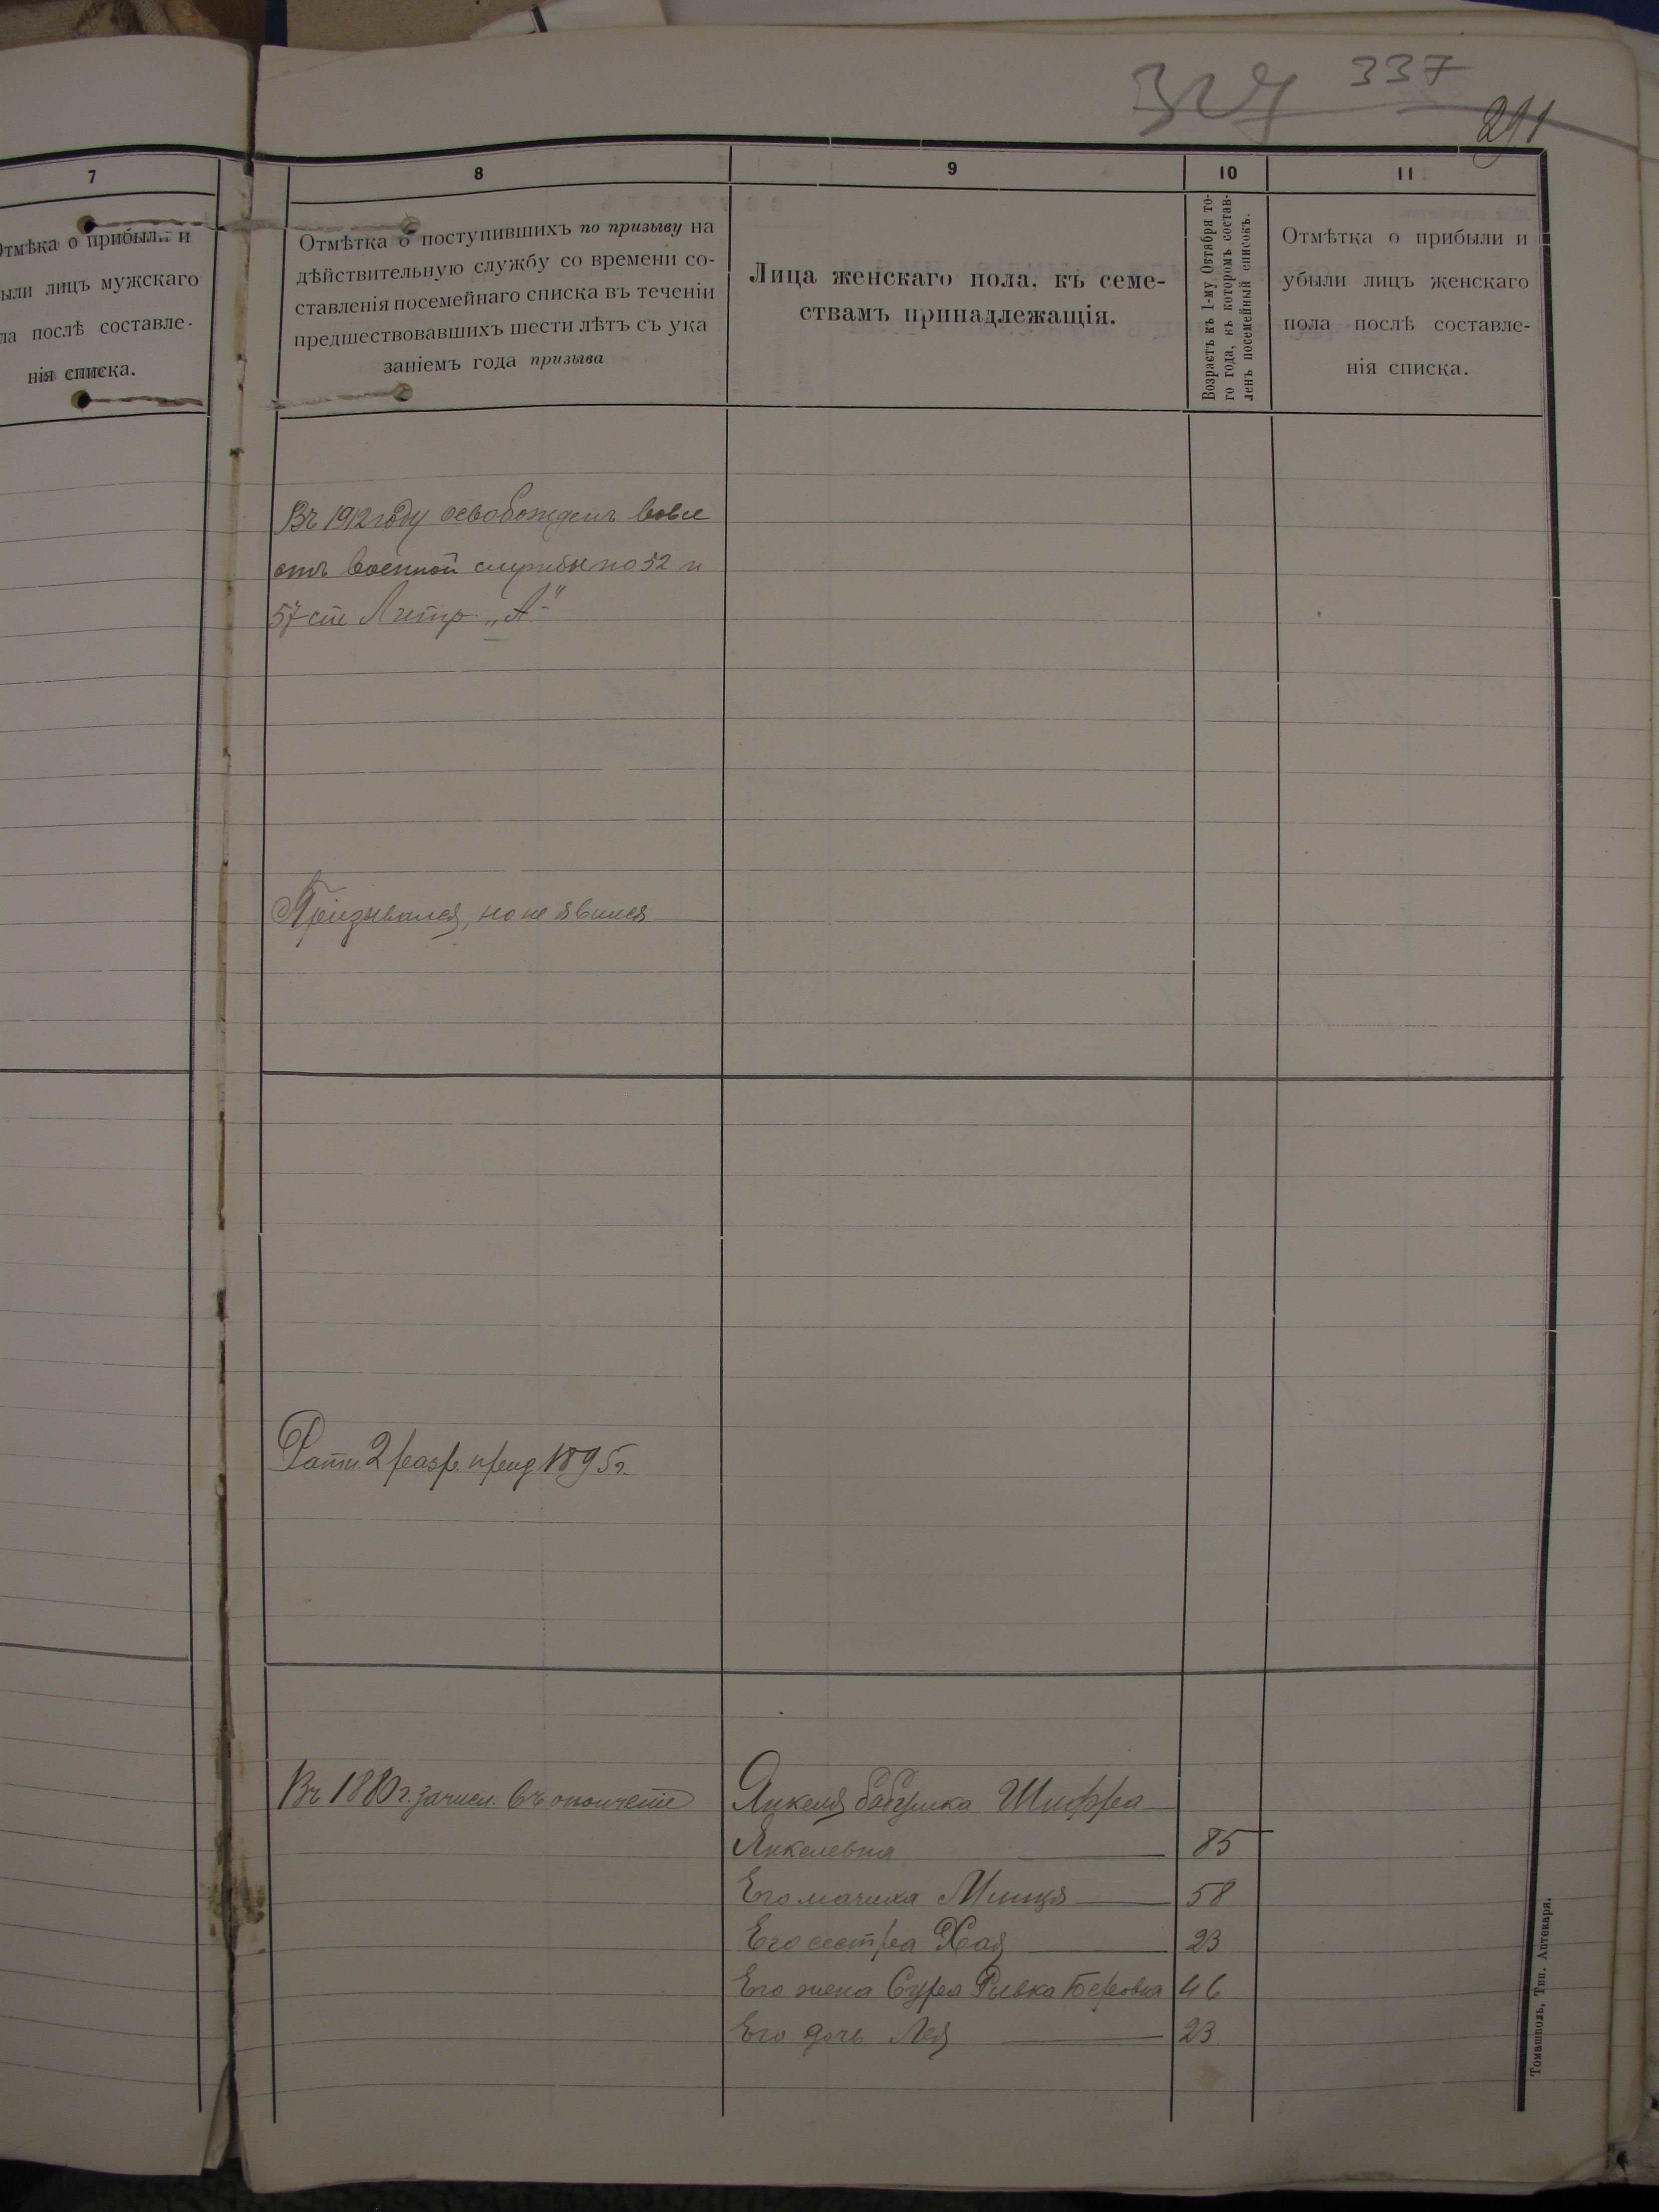 327 337
291
7
Отмѣка о прибыли и
ыли лицъ мужскаго
ла послѣ составле-
нія списка.
8
Отмѣтка о поступившихъ по призыву на
дѣйствительную службу со времени со-
ставленія посемейнаго списка въ теченіи
предшествовавшихъ шести лѣтъ съ ука
заніемъ года призыва
9
Лица женскаго пола, къ семе-
ствамъ принадлежащія.
10
Возрастъ къ 1-му Октября то-
го года, къ которомъ состав-
ленъ посемейный списокъ.
11
Отмѣтка о прибыли и
убыли лицъ женскаго
пола послѣ составле-
нія списка.
Въ 1912 году освобожденъ вовсе
отъ военной службы по 52 и
57 ст Литр „А"
Призывался, но не явился
Ратн. 2 разр. приз 1895 г.
Въ 1880 г. зачисл. въ ополченіе
Янкеля бабушка Шифра
Янкелевна 85
Его мачиха Минця 58
Его сестра Хая 23
Его жена Сура Ривка Беровна 46
Его дочь Лея 23
Томашполь, Тип. Аптекаря.